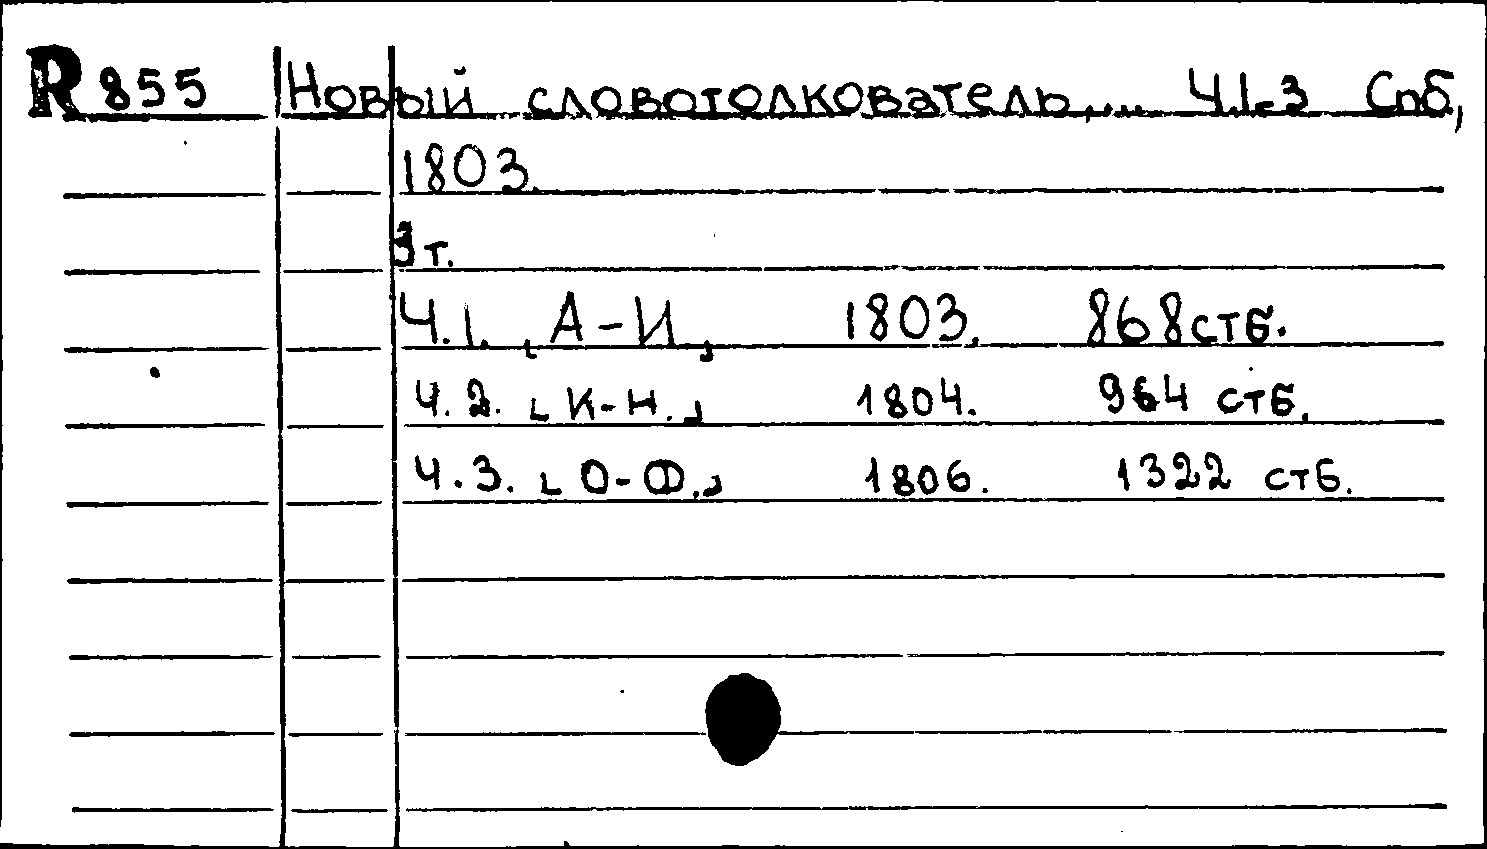 R 855 Новый словотолкователь,... Ч.1-3 Спб,
1803.
3 т.
Ч.1. [А-И.] 1803. 868 стб.
Ч.2. [К-Н.] 1804. 964 стб.
Ч.3. [О-Ф.] 1806. 1322 стб.